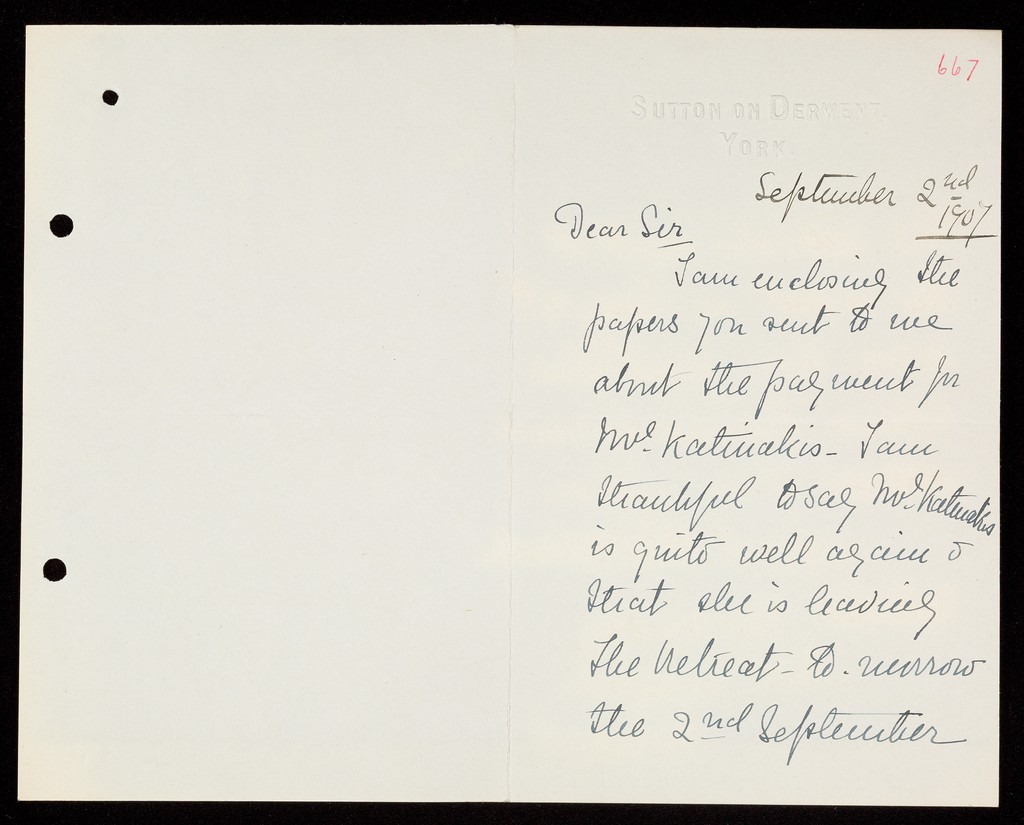 667
SUTTON ON DERWENT,
YORK.
September 2nd
1907
Dear Sir
I am enclosing the
papers you sent to me
about the payment for
Mrs. Katinakis - I am
thankful to say Mrs. Katinakis
is quite well again &
that she is leaving
The Retreat - to-morrow
the 2nd September